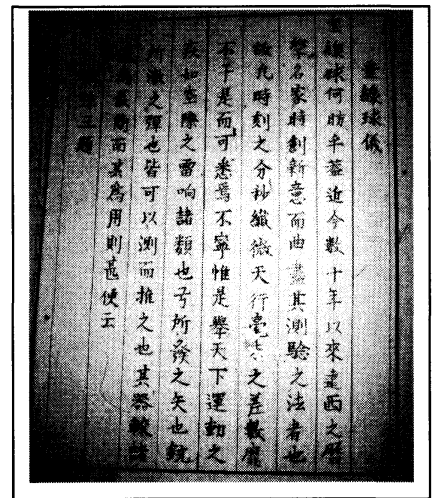 垂線球儀
線球何昉乎蓋近今數十年以來遠西之曆
名家時創新意而曲盡其測驗之法者也
凡時刻之分秒纖微天行毫末之差數靡
不于是而可悉焉不寧惟是舉天下運動之
疾如空際之雷响諸類也弓所發之矢也銃
所激之彈也皆可以測而推之也其器較諸
簡而其為用則甚便云
三題